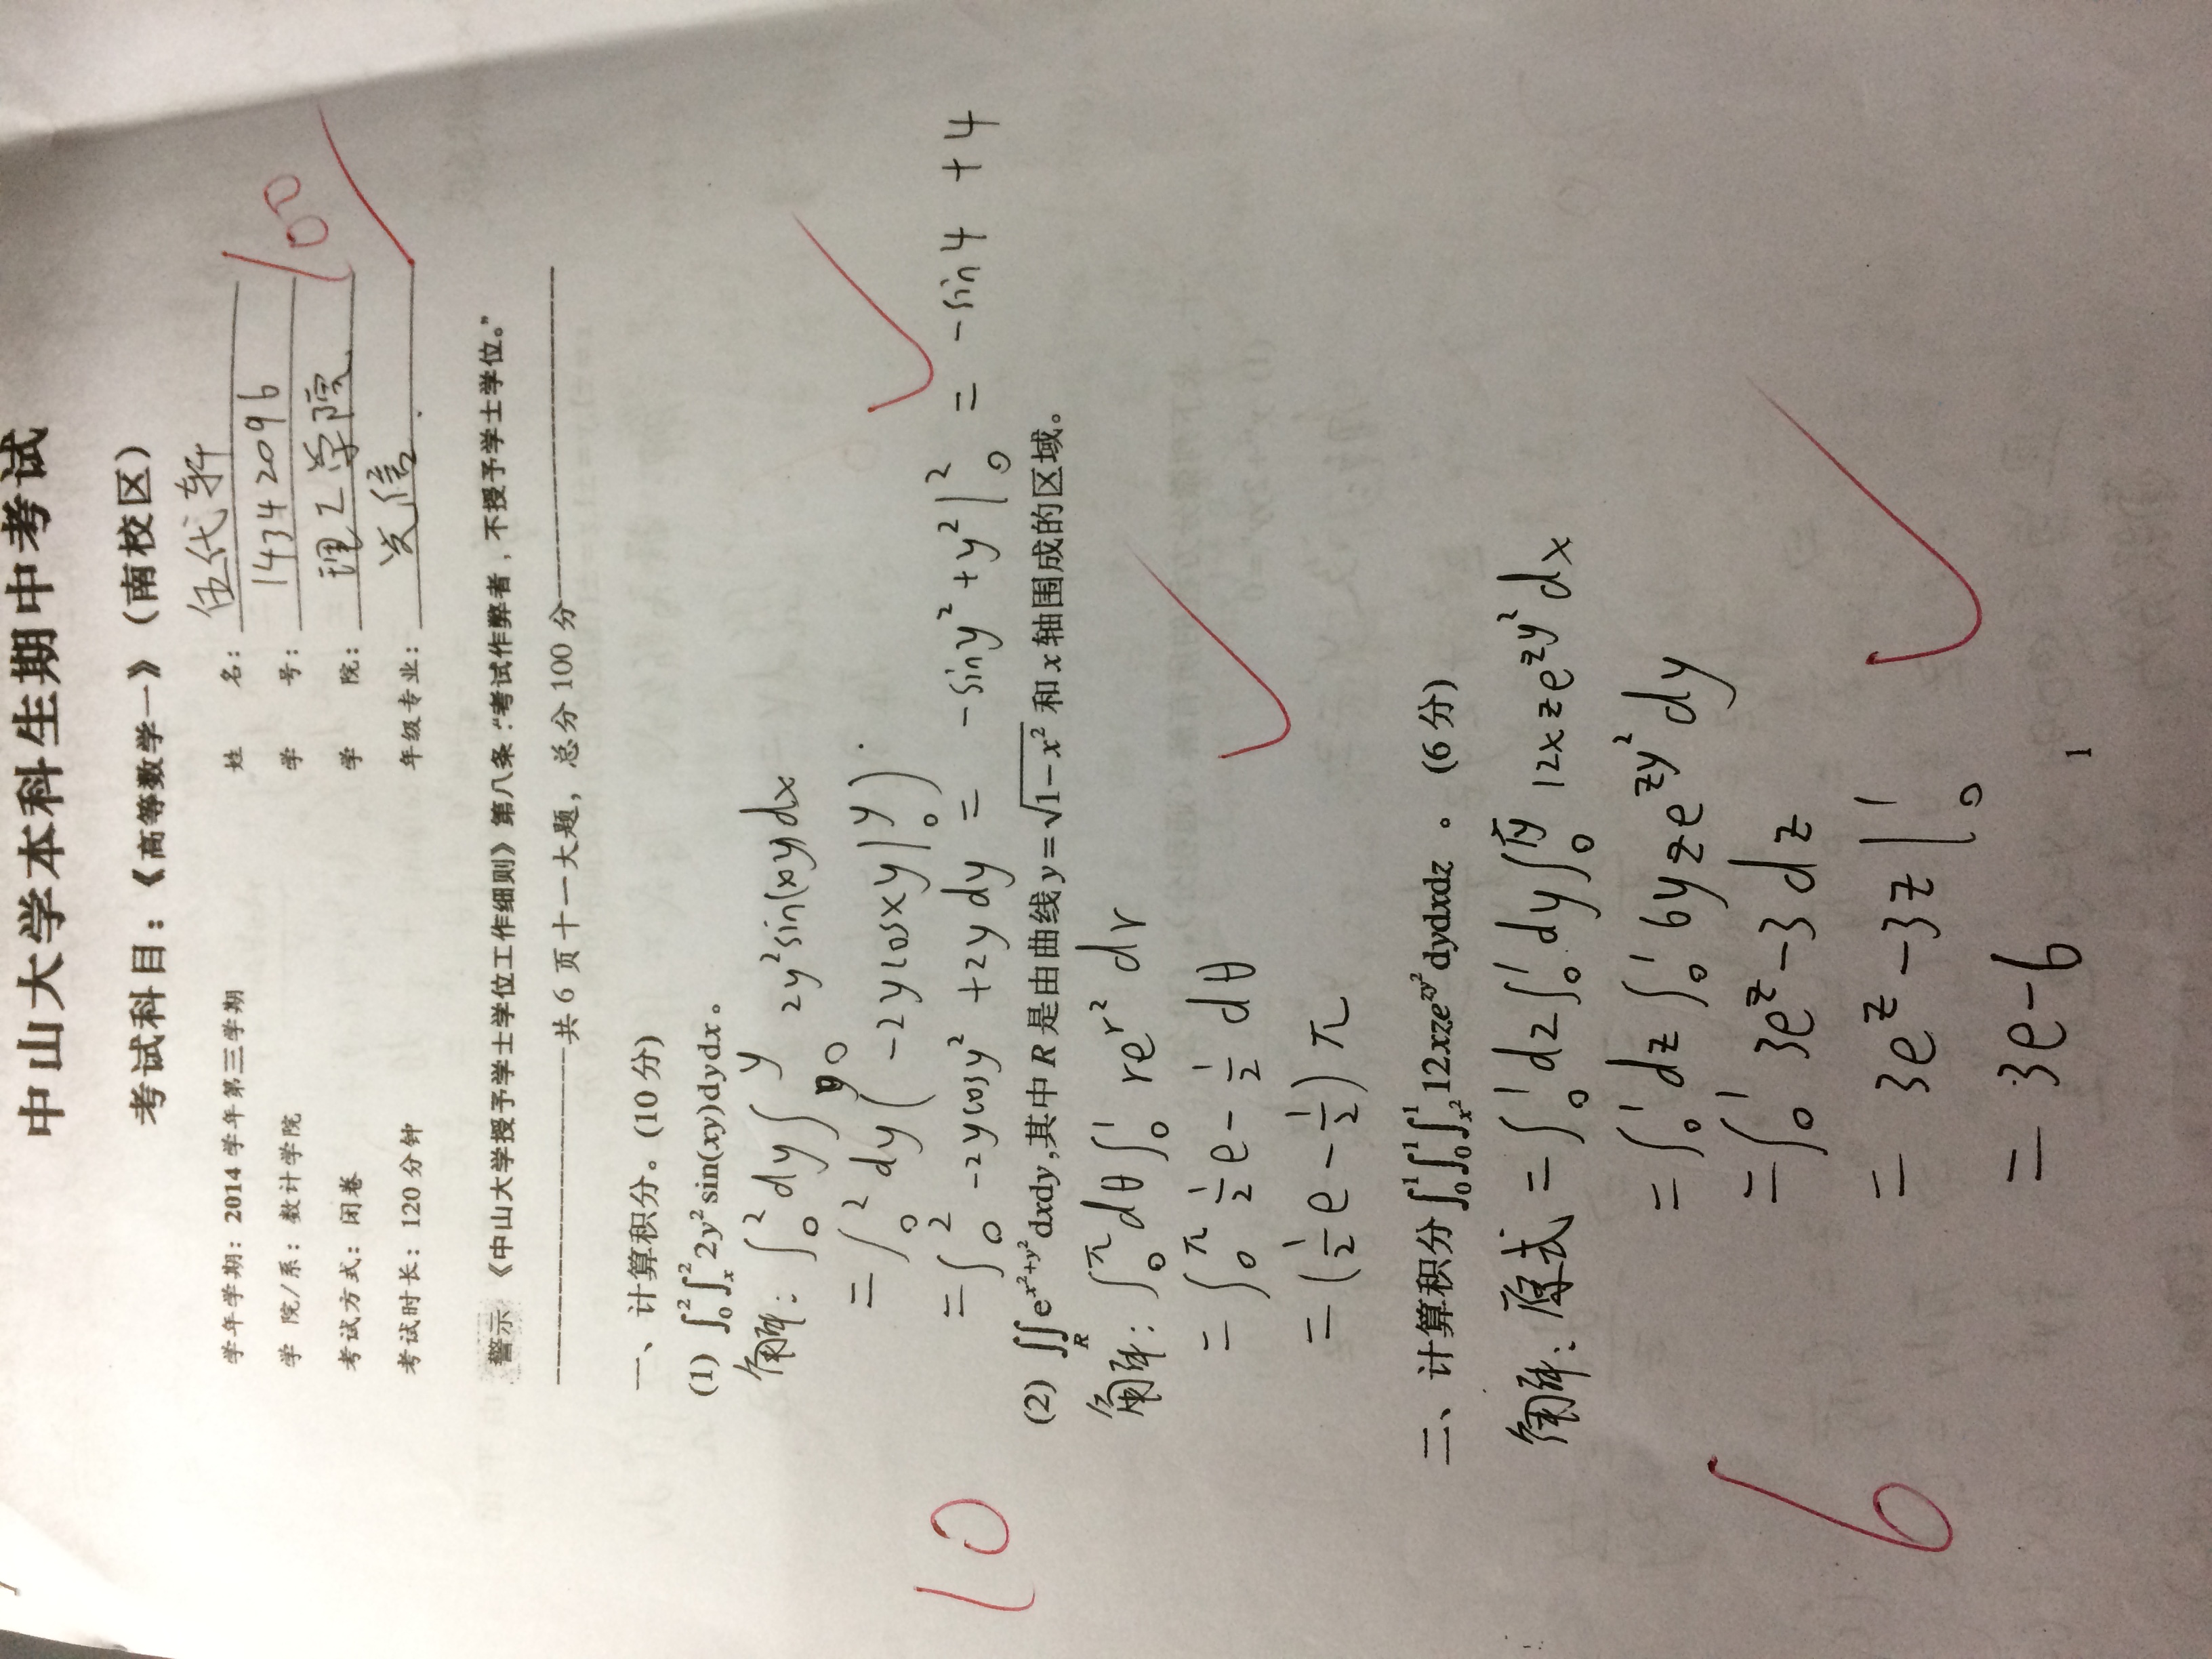 中山大学本科生期中考试
考试科目：《高等数学一》（南校区）
学年学期：2014 学年第三学期 姓 名：伍代轩
学 院/系：数计学院 学 号：14342096
考试方式：闭卷 学 院：理工学院
考试时长：120 分钟 年级专业：光信
100
警示 《中山大学授予学士学位工作细则》第八条：“考试作弊者，不授予学士学位。”
共 6 页十一大题，总分 100 分
一、计算积分。(10 分)
(1) ∫₀²∫ₓ² 2y² sin(xy)dydx。
解：∫₀² dy ∫₀^y 2y²sin(xy)dx
= ∫₀² dy ( -2ycosxy |₀^y )
10
= ∫₀² -2ycosy² + 2y dy = -siny² + y² |₀² = -sin4 + 4
(2) ∬_R e^(x²+y²) dxdy,其中 R 是由曲线 y=√(1-x²) 和 x 轴围成的区域。
解：∫₀^π dθ ∫₀¹ re^(r²) dr
= ∫₀^π ½e - ½ dθ
= (½e - ½) π
二、计算积分 ∫₀¹∫₀¹∫_(x²)^1 12xze^(zy²) dydxdz 。 (6 分)
解：原式 = ∫₀¹ dz ∫₀¹ dy ∫₀^(√y) 12xze^(zy²) dx
= ∫₀¹ dz ∫₀¹ 6yze^(zy²) dy
= ∫₀¹ 3e^z - 3 dz
6
= 3e^z - 3z |₀¹
= 3e - 6
1